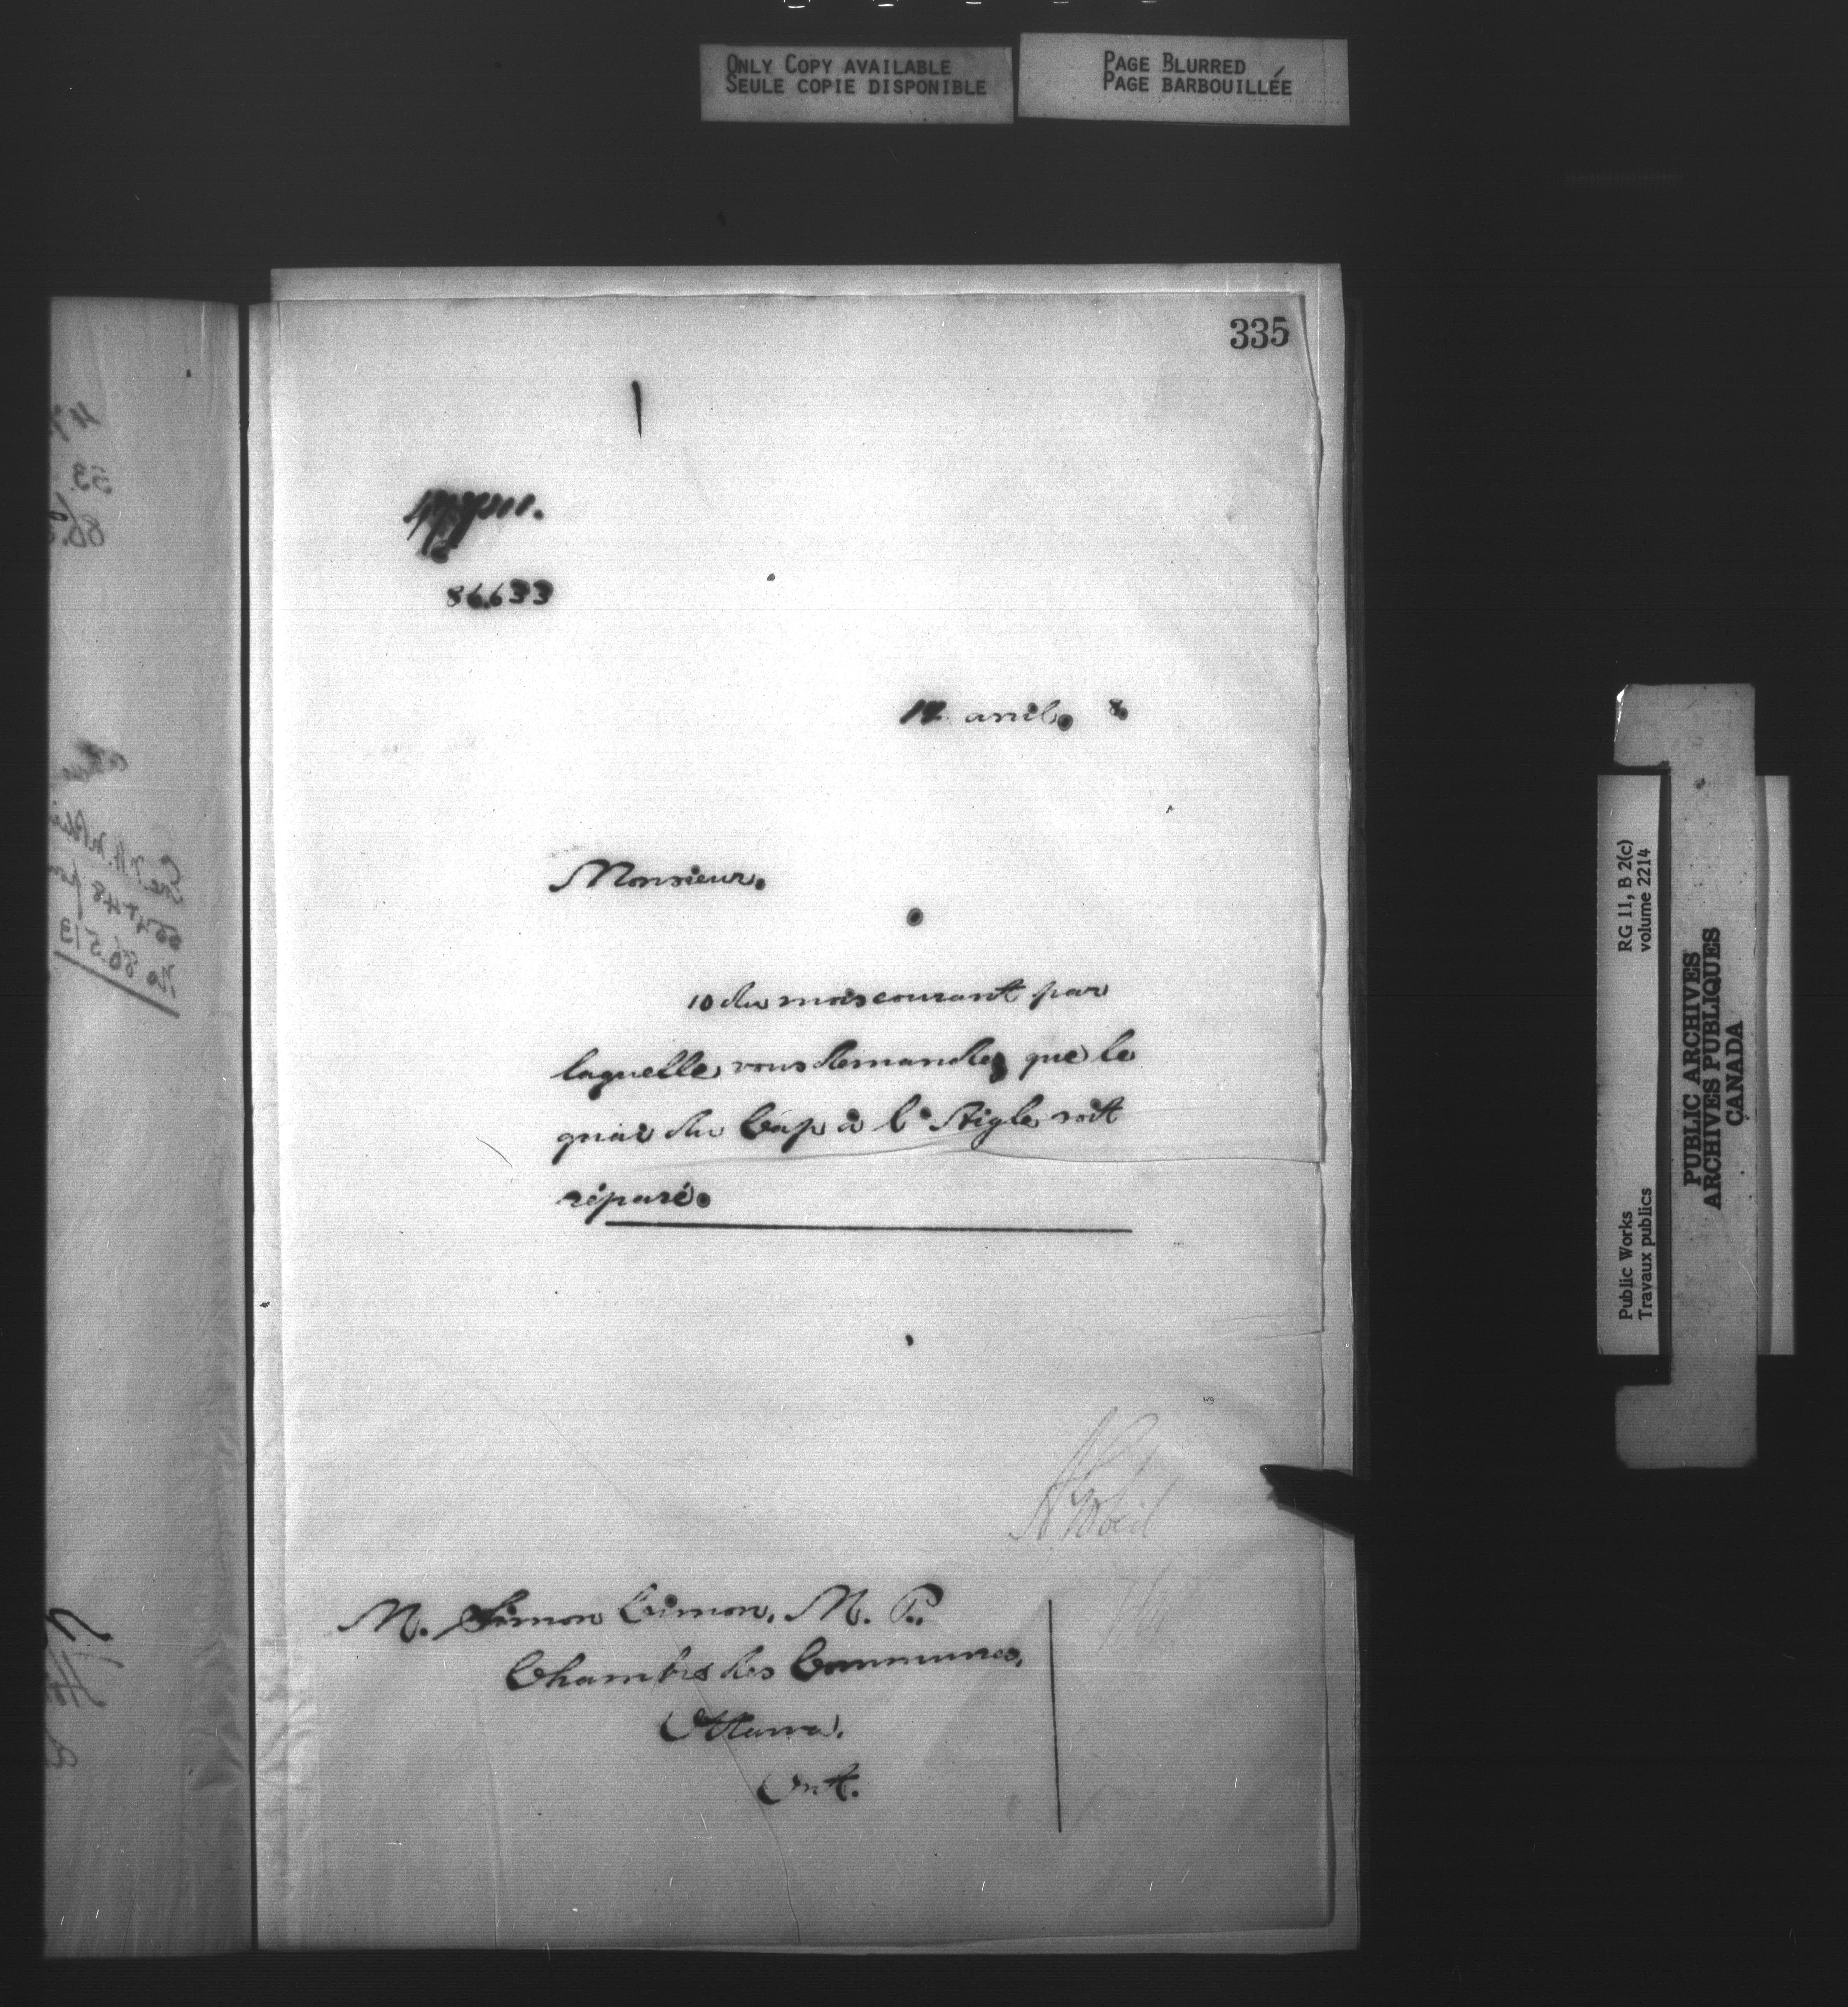 ONLY COPY AVAILABLE
SEULE COPIE DISPONIBLE
PAGE BLURRED
PAGE BARBOUILLÉE
335
86.633
17 avril. 8
Monsieur.
10 du mois courant par
laquelle vous demandez que le
quai du Cap à l'Aigle soit
réparé.
M. Simon Cimon, M. P.
Chambre des Communes,
Ottawa.
Ont.
No 86.513
RG 11, B 2(c)
volume 2214
Public Works
Travaux publics
PUBLIC ARCHIVES
ARCHIVES PUBLIQUES
CANADA